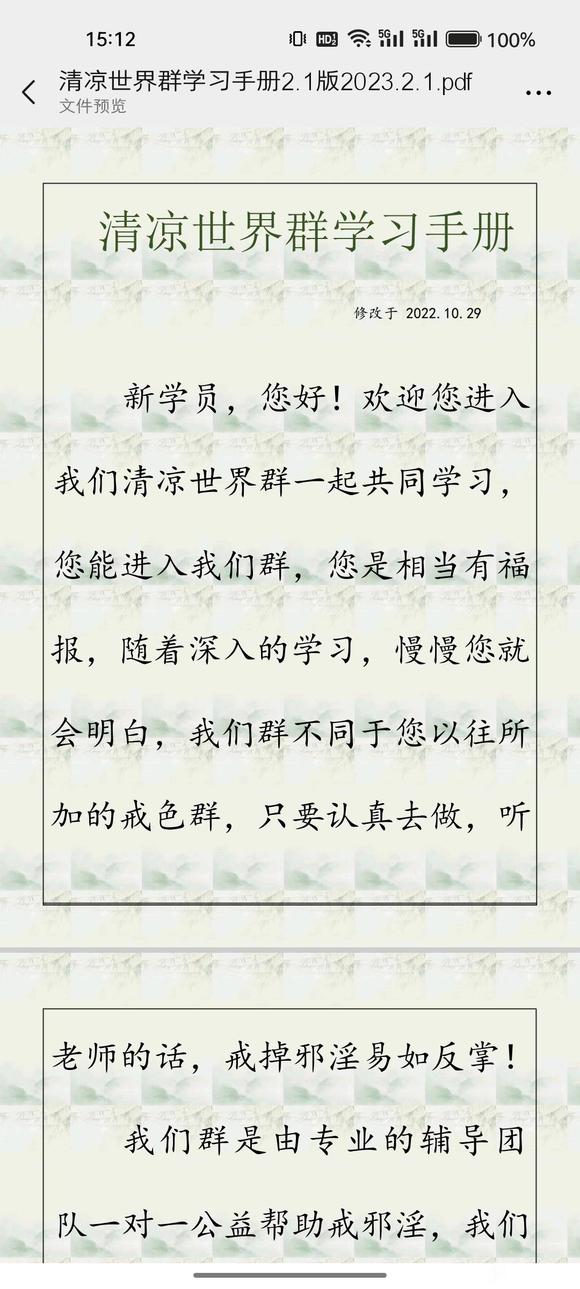 15:12
HD2 5G 5G 100%
清凉世界群学习手册2.1版2023.2.1.pdf
文件预览
清凉世界群学习手册
修改于 2022.10.29
新学员，您好！欢迎您进入
我们清凉世界群一起共同学习，
您能进入我们群，您是相当有福
报，随着深入的学习，慢慢您就
会明白，我们群不同于您以往所
加的戒色群，只要认真去做，听
老师的话，戒掉邪淫易如反掌！
我们群是由专业的辅导团
队一对一公益帮助戒邪淫，我们